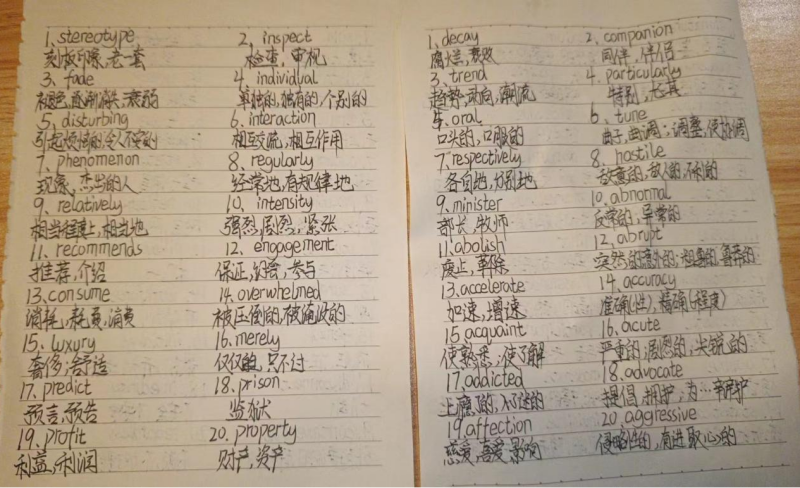 1. stereotype 2. inspect
刻板印象,老一套 检查,审视
3. fade 4. individual
褪色,逐渐消失;衰弱 单独的,独有的,个别的
5. disturbing 6. interaction
引起烦恼的,令人不安的 相互交流,相互作用
7. phenomenon 8. regularly
现象,杰出的人 经常地,有规律地
9. relatively 10. intensity
相当程度上,相当地 强烈,剧烈,紧张
11. recommends 12. engagement
推荐,介绍 保证,约会,参与
13. consume 14. overwhelmed
消耗,耗费,消费 被压倒的,被淹没的
15. luxury 16. merely
奢侈;舒适 仅仅,只不过
17. predict 18. prison
预言,预告 监狱
19. profit 20. property
利益,利润 财产,资产
1. decay 2. companion
腐烂,衰败 同伴,伴侣
3. trend 4. particularly
趋势,动向,潮流 特别,尤其
5. oral 6. tune
口头的,口服的 曲子,曲调;调整,使协调
7. respectively 8. hostile
各自地,分别地 敌意的,敌人的,不利的
9. minister 10. abnormal
部长,牧师 反常的,异常的
11. abolish 12. abrupt
废止,革除 突然的意外的;粗鲁的,鲁莽的
13. accelerate 14. accuracy
加速,增速 准确(性),精确(程度)
15 acquaint 16. acute
使熟悉;使了解 严重的;剧烈的;尖锐的
17. addicted 18. advocate
上瘾的,入迷的 提倡,拥护,为…辩护
19. affection 20 aggressive
慈爱,喜爱,影响 侵略性的,有进取心的